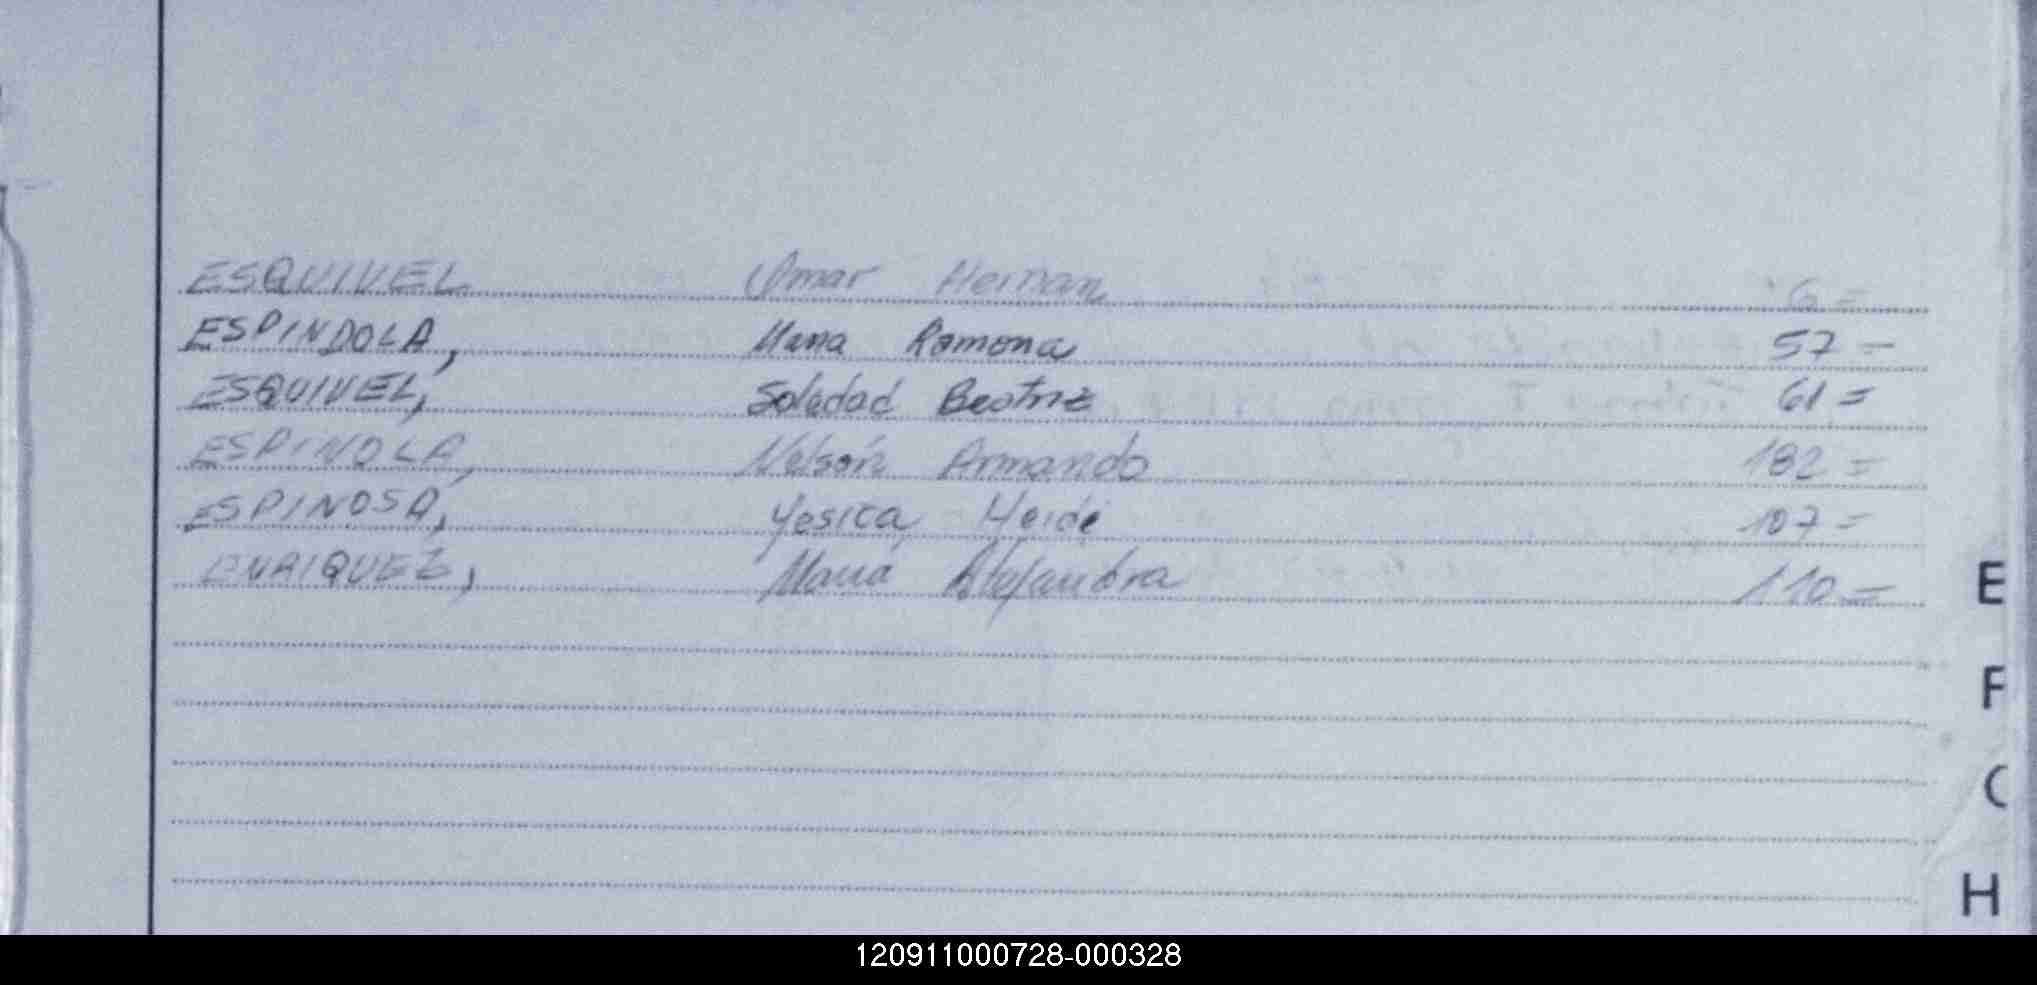 ESQUIVEL Omar Hernan 6=
ESPINDOLA, Maria Ramona 57=
ESQUIVEL, Soledad Beatriz 61=
ESPINDOLA, Nelson Armando 182=
ESPINOSA, Yesica Heide 107=
ENRIQUEZ, Maria Alejandra 110=
E
F
H
120911000728-000328